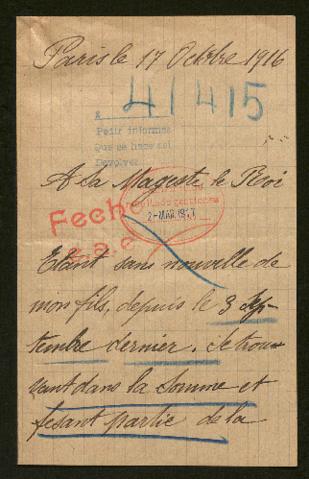 Paris le 17 Octbre 1916
41415
A
Pedir informes
Que se hace así
Devolver
A sa Magesté le Roi
Fecho
2-MAR 1917
Etant sans nouvelle de
mon fils, depuis le 3 Sep-
tembre dernier. Se trou-
vant dans la Somme et
fesant partie de la